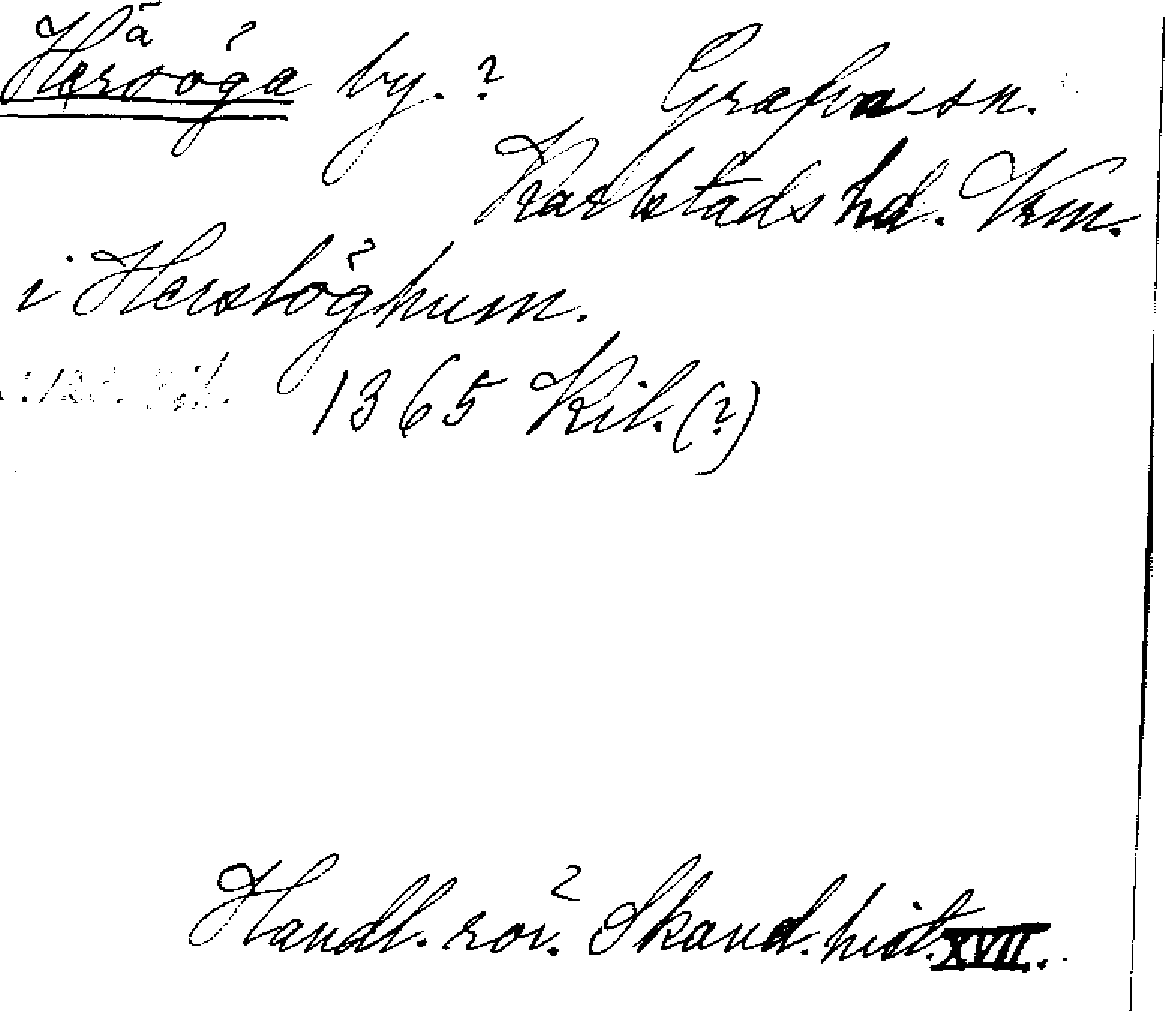 Hersöga by. ? Grafva sn.
Karlstads hd. Vrm.
i Herslöghum.
1365 Kil. (?)
Handl. rör. Skand. hist. XVII.